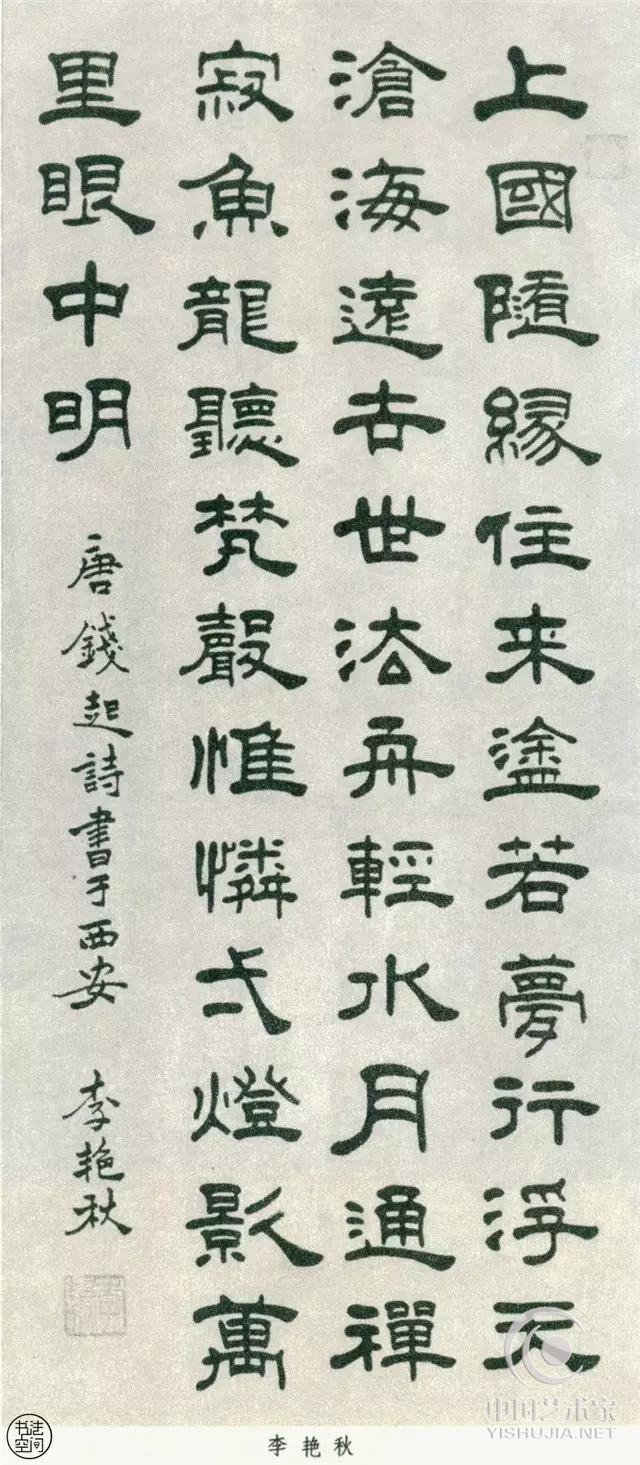 上國隨緣住来塗若夢行浮天
滄海遠去世法舟輕水月通禪
寂魚龍聽梵聲惟憐弌燈影萬
里眼中明 唐錢起詩書于西安 李艳秋
中国艺术家
YISHUJIA.NET
书法
空间
李艳秋